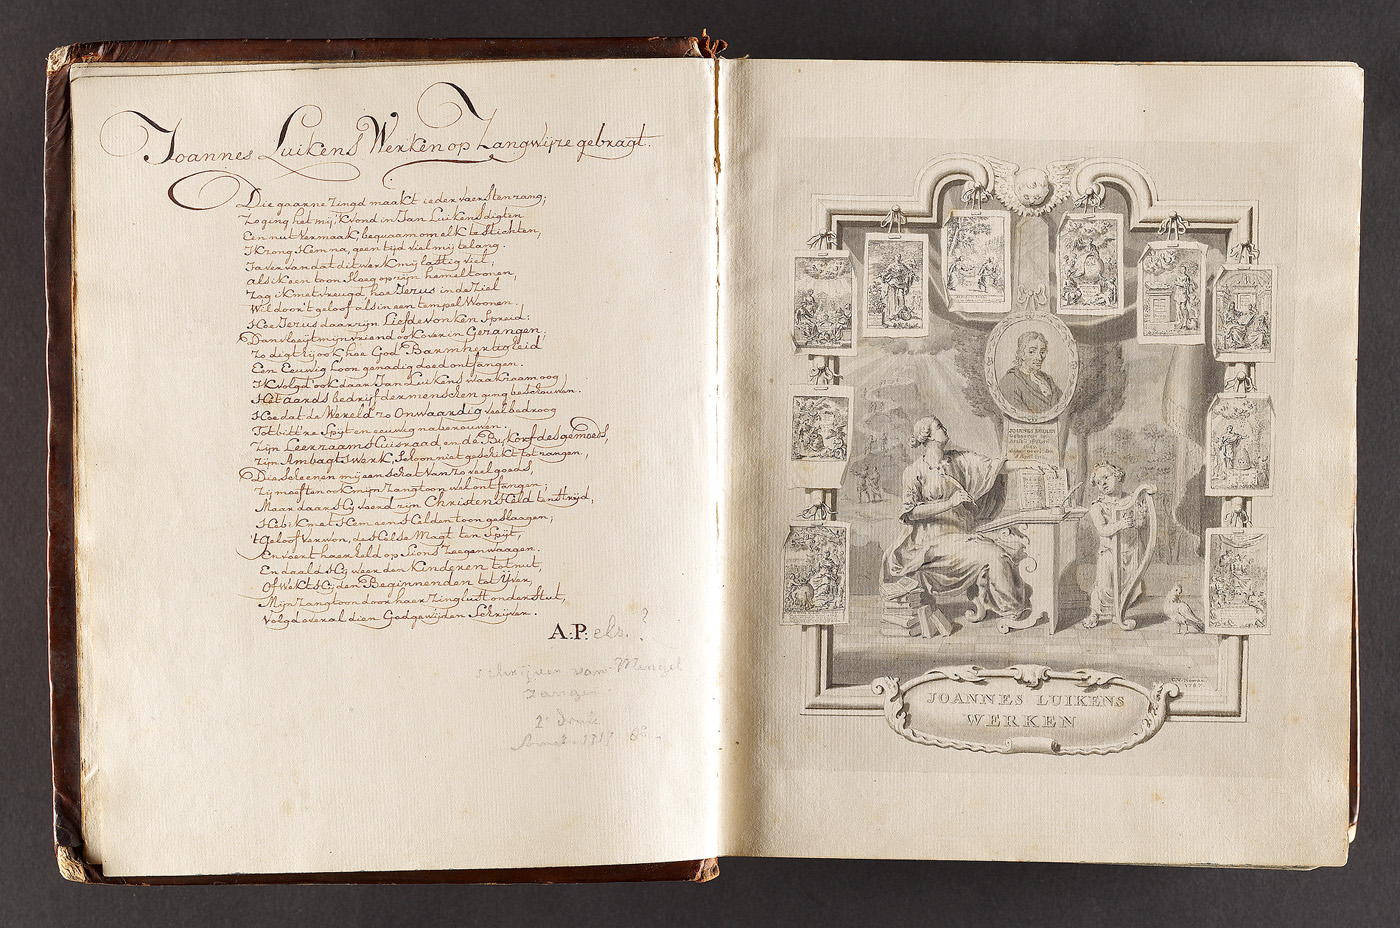 Joannes Luikens Werken op Zangwijze gebragt.
Die gaarne zingd maakt ieder vaers ten zang;
Zo ging het mij; 'k vond in Jan Luikens digten
Een nut vermaak, bequaam om elk te stichten,
Ik zong Hem na, geen tijd viel mij te lang.
Ja ver van dat dit werk mij lastig viel,
als ik een toon sloeg op zijn hemeltoonen,
Zag ik met vreugd hoe Jezus in de Ziel
Wil door 't geloof als in een tempel Woonen.
Hoe Jezus daar zijn Liefdevonken Spreid:
Dan vleijt mijn vriend ook over in Gezangen,
Zo digt hij ook hoe God Barmhertigleid
Een Eeuwig Loon genadig doed ontfangen.
Ik volgd' ook daar Jan Luikens waakzaam oog
Het aards bedrijf der menschen ging beschouwen.
Hoe dat de Wereld zo Onwaardig veel bedroog
Tot bitt're Spijt en eeuwig naberouwen.
Zijn Leerzaam Huisraad en de Bijkorf des gemoeds,
Zijn Ambagtswerk, Schoon niet geschikt tot zangen,
Die scheenen mij een schat van zo veel goeds,
Zij moesten ook mijn Zangtoon wel ontfangen;
Maar daar Hij voerd zijn Christen Held ten strijd,
Heb ik met Hem een Heldentoon geslaagen;
't Geloof verwon, de Helse Magt ten Spijt,
En voert haer held op Sions Zeegenwaagen.
En daald Hij weer den Kinderen tot nut,
Of wekt Hij den Beginnenden tot Yver,
Mijn Zangtoon door haer Zinglust onderstut,
Volgd overal dien Godgewijden Schrijver.
A:P:els.?
schrijver van Mengel
zangen
2e druk
1717 8o
JOANNES LUIKENS
WERKEN